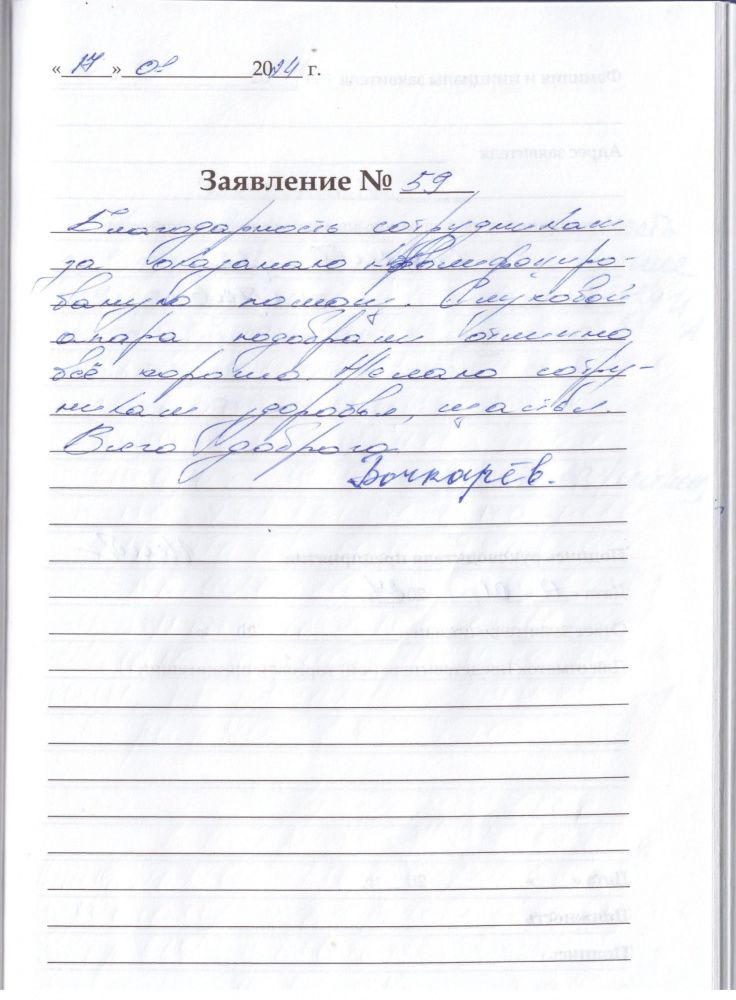 «17» 01 2024 г.
Заявление № 59
Благодарность сотрудникам
за оказаную квалифициро-
ваную помощ. Слуховой
апара подобрали отлично
всё хорошо. Желаю сотру-
никам здоровья, щастья.
Всего доброго
Бочкарёв.